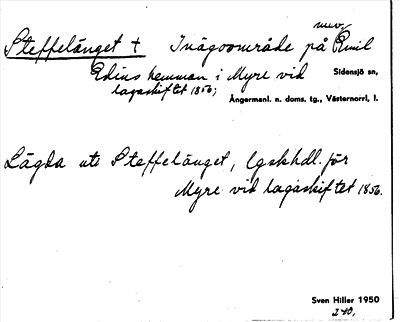 nuv.
Steffelänget + Inägoområde på Emil
Edins hemman i Myre vid Sidensjö sn,
lagaskiftet 1856; Ångermanl. n. doms. tg., Västernorrl, l.
Lägda ute Steffelänget, lgskhdl. för
Myre vid lagaskiftet 1856.
Sven Hiller 1950
240,